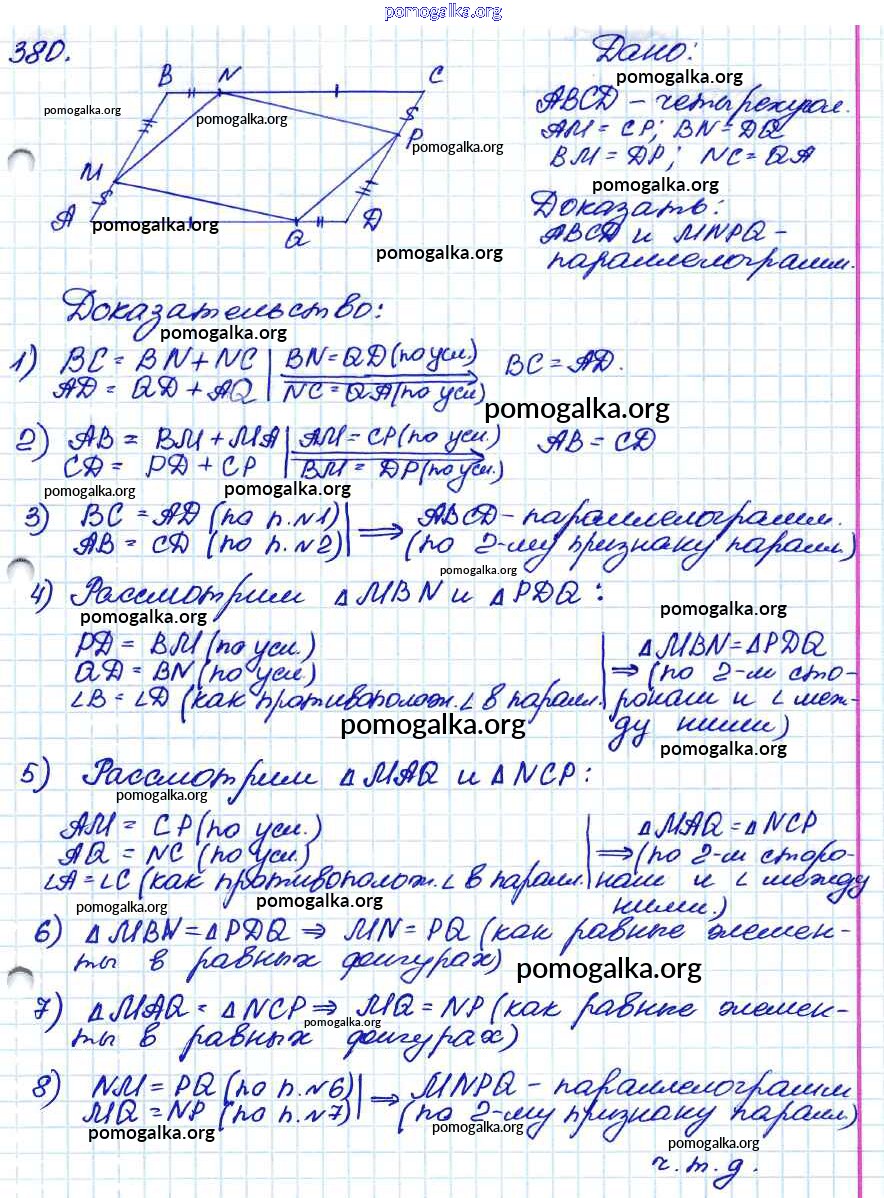 pomogalka.org
380.
Дано:
pomogalka.org
B N C
pomogalka.org
pomogalka.org
ABCD - четырехугол.
AM = CP; BN = DQ
P
pomogalka.org
BM = DP; NC = QA
M
pomogalka.org
A
pomogalka.org
Q
D
Доказать:
ABCD и MNPQ -
pomogalka.org
параллелограмм.
Доказательство:
pomogalka.org
1) BC = BN + NC | BN = QD (по усл.) BC = AD.
AD = QD + AQ | NC = QA (по усл)
pomogalka.org
2) AB = BM + MA | AM = CP (по усл.) AB = CD
CD = PD + CP | BM = DP (по усл.)
pomogalka.org
pomogalka.org
3) BC = AD (по п.№1) | ⇒ ABCD - параллелограмм.
AB = CD (по п.№2) | (по 2-му признаку парал.)
pomogalka.org
4) Рассмотрим △MBN и △PDQ:
pomogalka.org
pomogalka.org
PD = BM (по усл.) | △MBN = △PDQ
QD = BN (по усл.) | ⇒ (по 2-м сто-
∠B = ∠D (как противополож. ∠ в парал. | ронам и ∠ меж-
pomogalka.org
ду ними)
pomogalka.org
5) Рассмотрим △MAQ и △NCP:
pomogalka.org
AM = CP (по усл.) | △MAQ = △NCP
AQ = NC (по усл.) | ⇒ (по 2-м сторо-
∠A = ∠C (как противополож. ∠ в парал. | нам и ∠ между
pomogalka.org
pomogalka.org
ними.)
6) △MBN = △PDQ ⇒ MN = PQ (как равные элемен-
ты в равных фигурах)
pomogalka.org
7) △MAQ = △NCP ⇒ MQ = NP (как равные элемен-
pomogalka.org
ты в равных фигурах)
8) NM = PQ (по п.№6) | ⇒ MNPQ - параллелограмм
MQ = NP (по п.№7) | (по 2-му признаку парал.)
pomogalka.org
pomogalka.org
pomogalka.org
ч.т.д.